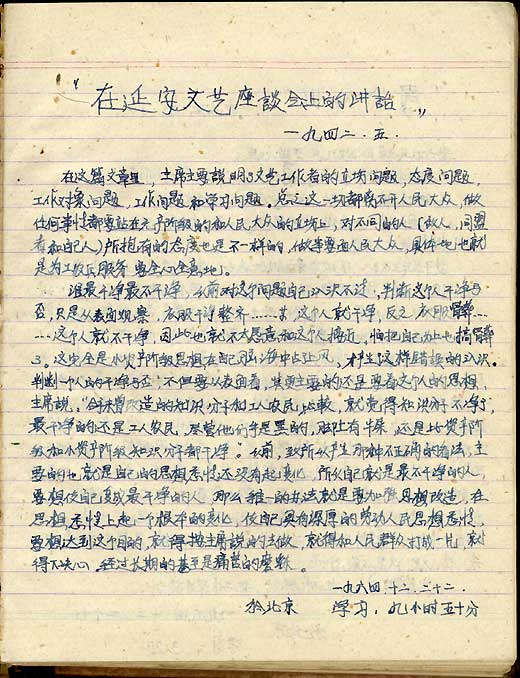 “在延安文艺座談会上的讲话”
一九四二.五.
在这篇文章里，主席主要說明了文艺工作者的立场问题，态度问题，
工作对象问题，工作问题和学习问题。总之这一切都离不开人民大众，做
任何事情都要站在无产阶级的和人民大众的立场上，对不同的人（敌人，同盟
者和自己人）所抱有的态度也是不一样的，做事要面向人民大众，具体地也就
是为工农兵服务，要全心全意地。
谁最干净最不干净，以前对这个问题自己认识不过，判断这个人干净与
否，只是从表面观察，衣服干净整齐……等，这个人就干净，反之，衣服髒……
……这个人就不干净，因此也就不大愿意和这个人接近，怕把自己也搞髒
了。这完全是小资产阶级思想在自己脑海中占上风，才产生这样错误的认识。
判断一个人的干净与否：不但要从表面看，其更主要的还是要看这个人的思想，
主席說，“拿未曾改造的知识分子和工人农民比較，就觉得知识分子不干净了，
最干净的还是工人农民，尽管他们手是黑的，脚上有牛屎，还是比资产阶
级和小资产阶级知识分子都干净。”以前，我所以产生那种不正确的看法，主
要的也就是自己的思想感情还没有起变化，所以自己就是最不干净的人，
要想使自己变成最干净的人，那么唯一的办法就是要加强思想改造，在
思想感情上起一个根本的变化，使自己具有深厚的劳动人民思想感情，
要想达到这个目的，就得按主席說的去做，就得和人民群众打成一片，就
得下决心，经过长期的甚至是痛苦的磨练。
一九六四.十二.二十二.
於北京 学习，九小时五十分